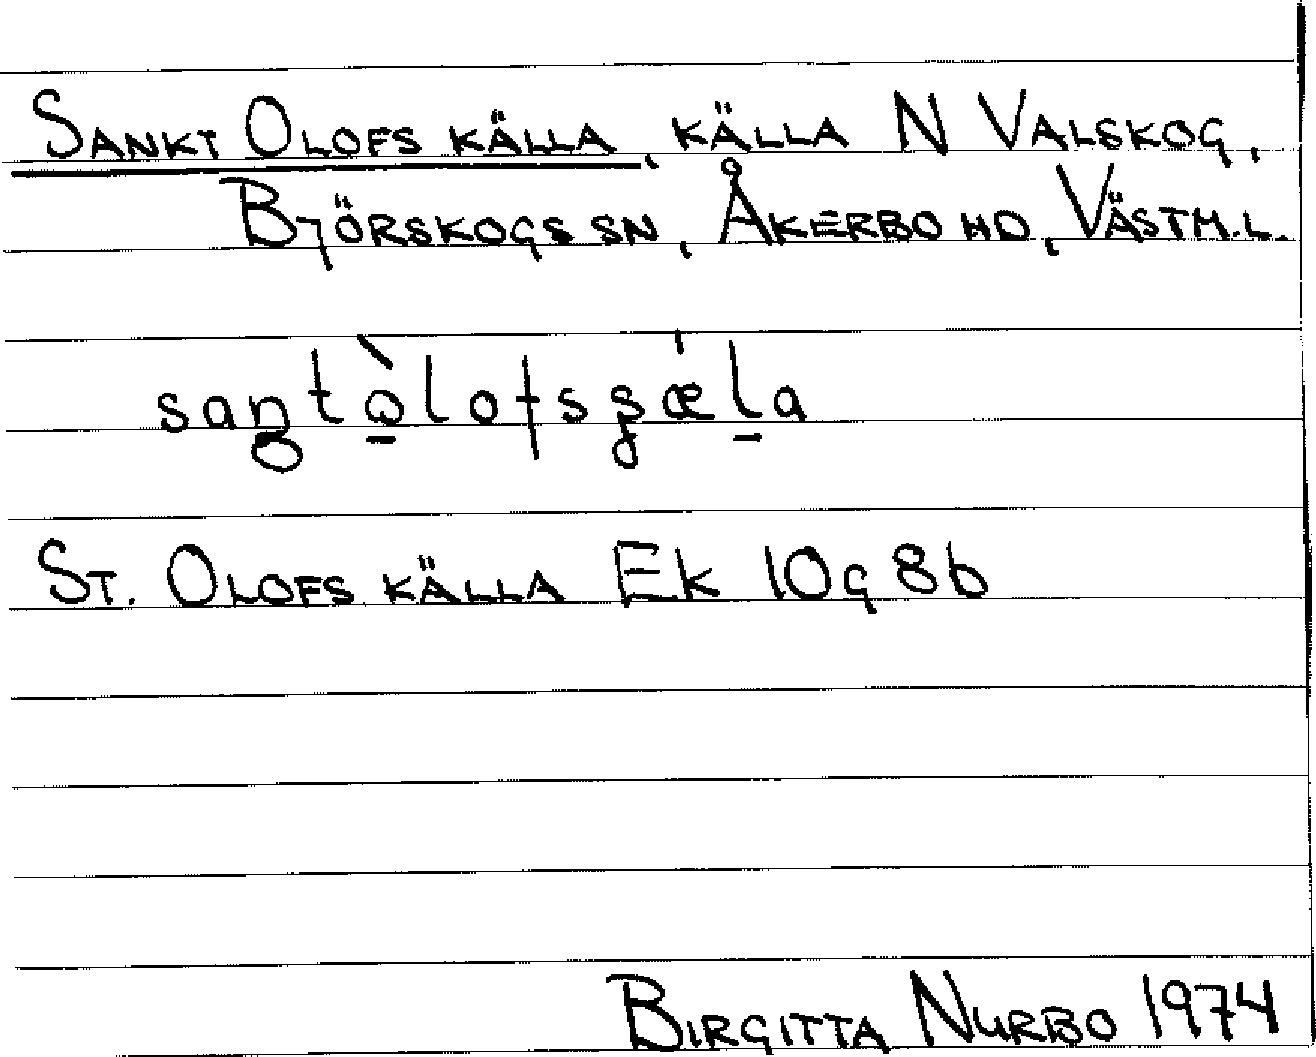 SANKT OLOFS KÄLLA, KÄLLA N VALSKOG,
BJÖRSKOGS SN, ÅKERBO HD, VÄSTM.L.
saŋtò̠lofsʂæ'l̠a
ST. OLOFS KÄLLA EK 10g 8b
BIRGITTA NURBO 1974